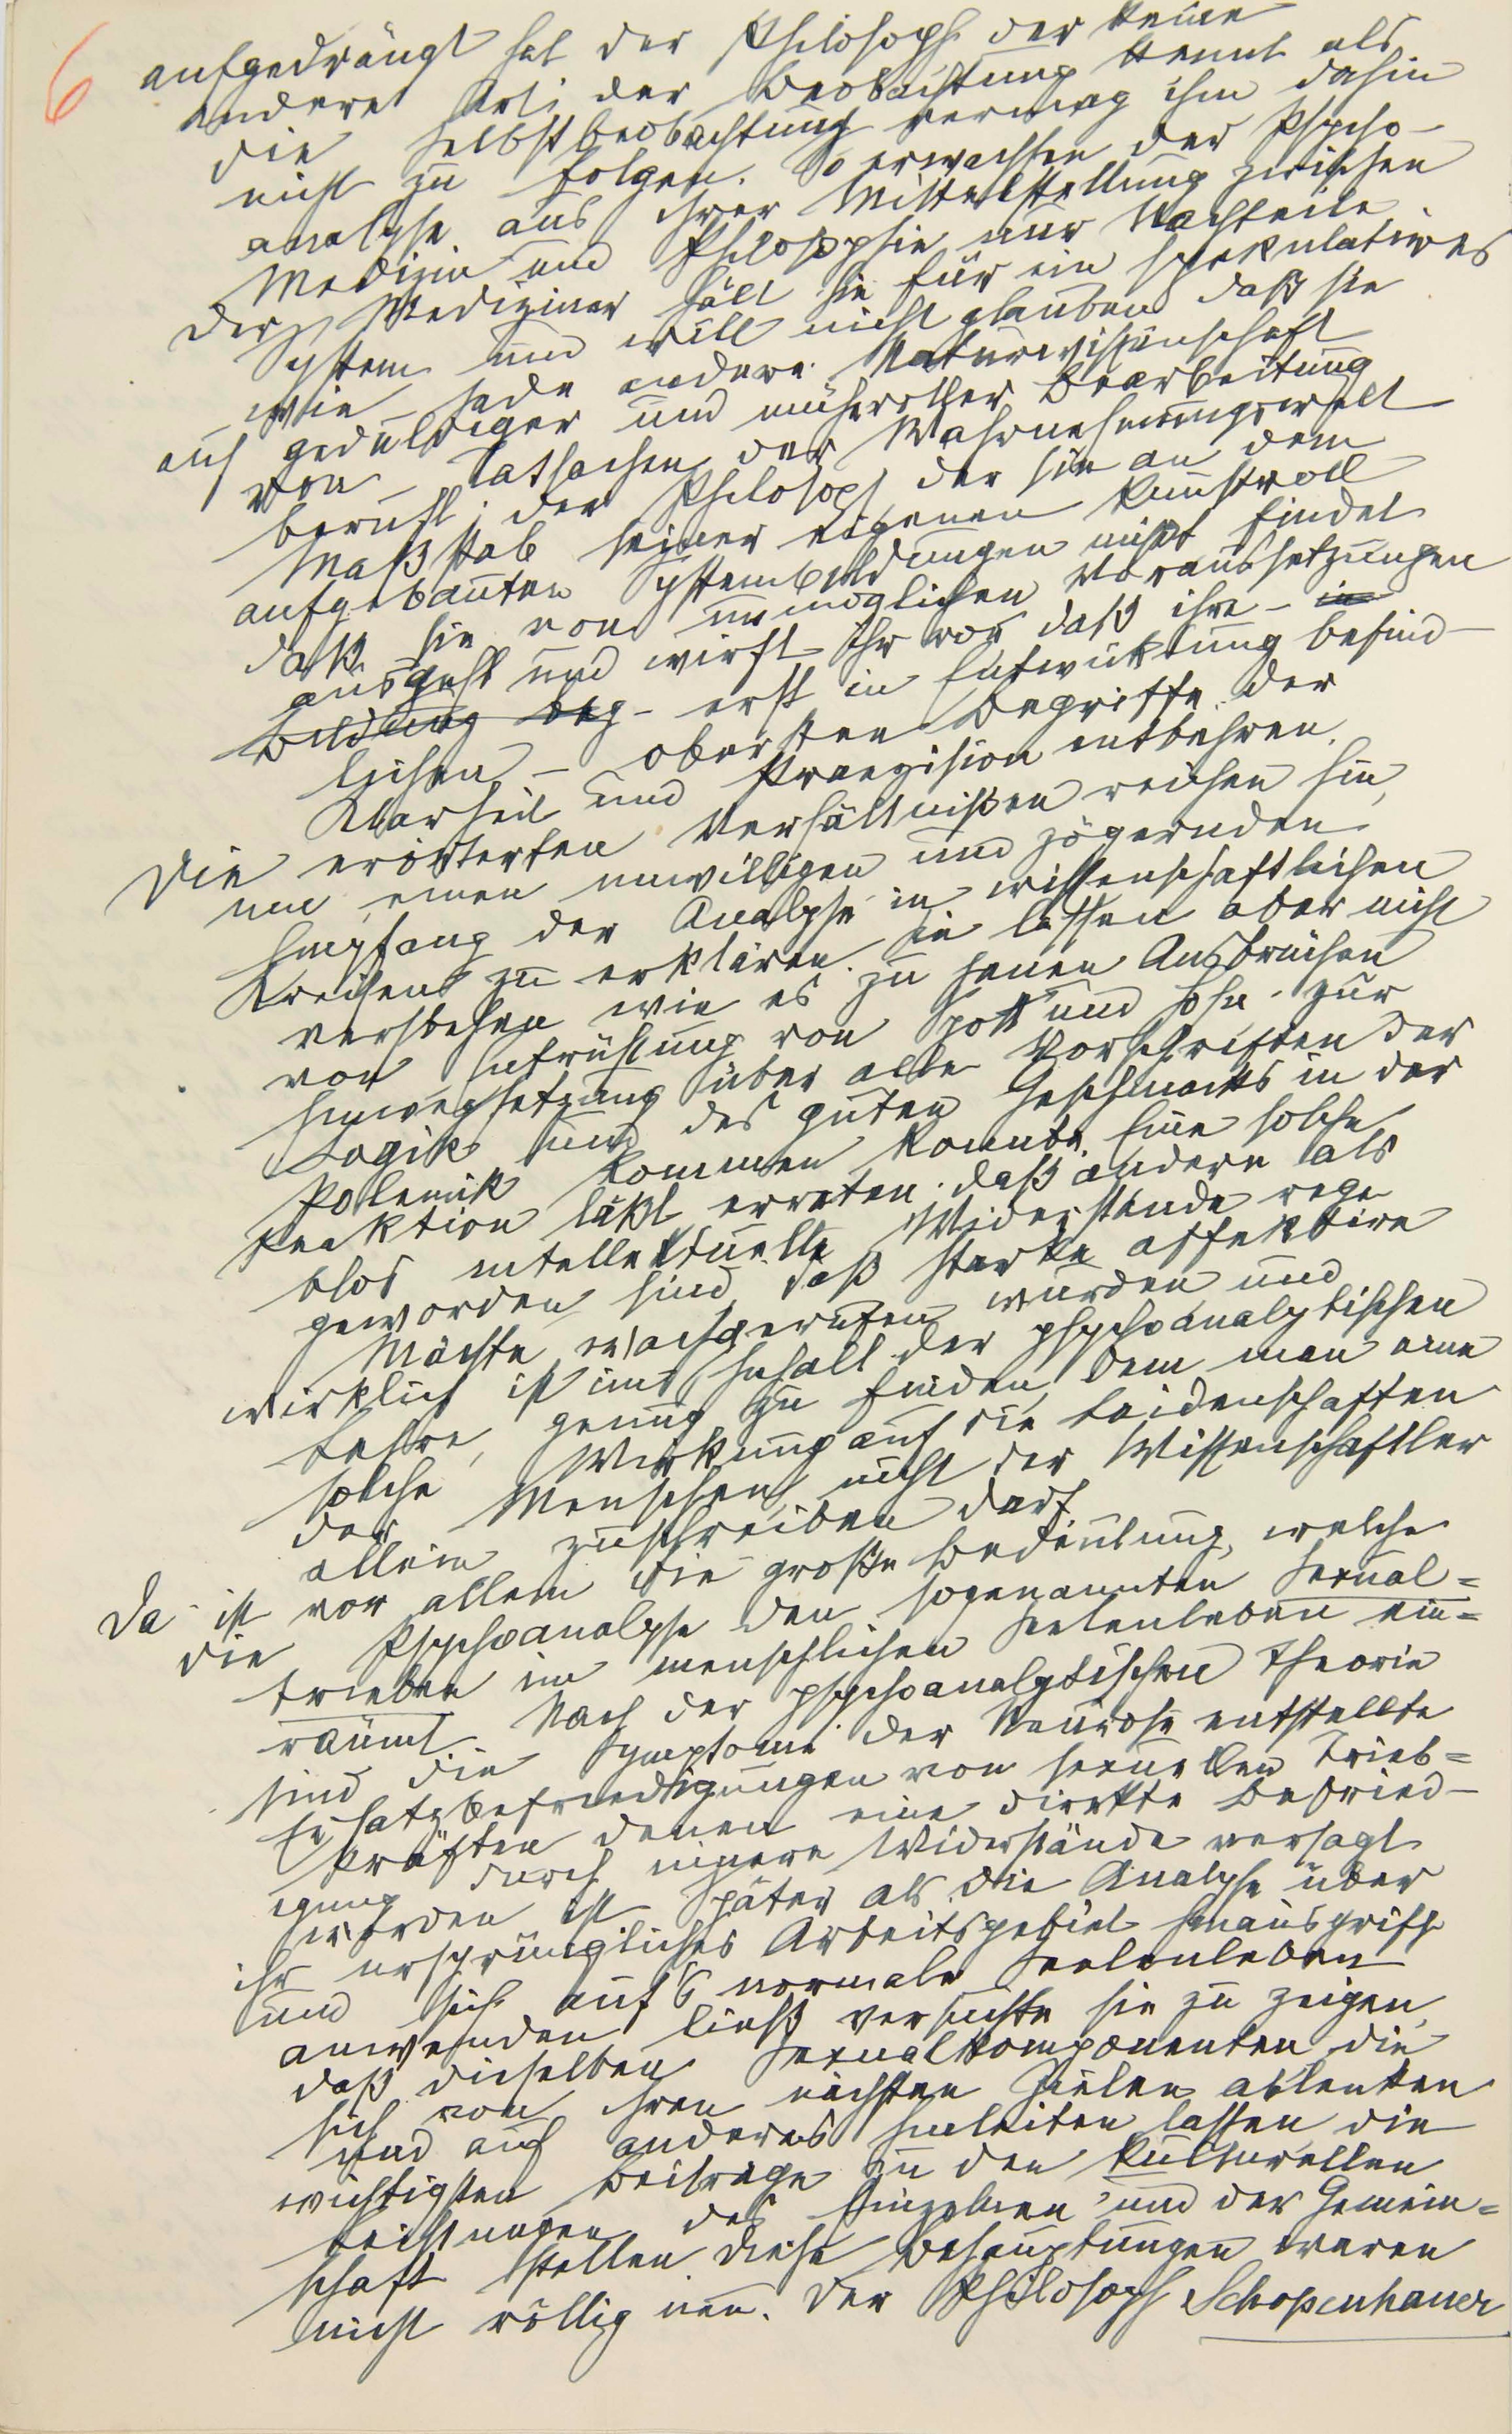 6
aufgedrängt hat der Philosoph der keine
andere Art der Beobachtung kennt als
die Selbstbeobachtung vermag ihm dahin
nicht zu folgen. So erwachsen der Psycho-
analyse aus ihrer Mittelstellung zwischen
Medizin und Philosophie nur Nachteile.
Der Mediziner hält sie für ein spekulatives
System und will nicht glauben daß sie
wie jede andere Naturwissenschaft
auf geduldiger und mühevoller Bearbeitung
von Tatsachen der Wahrnehmungswelt
beruht; der Philosoph der sie an dem
Maßstab seiner eigenen kunstvoll
aufgebauten Systembildungen mißt findet
daß sie von unmöglichen Voraussetzungen
ausgeht und wirft ihr vor daß ihre - in
Bildung beg - erst in Entwicklung befind-
lichen - obersten Begriffe der
Klarheit und Praezision entbehren.
Die erörterten Verhältnißen reichen hin,
um einen unwilligen und zögernden
Empfang der Analyse in wissenschaftlichen
Kreisen zu erklären. Sie lassen aber nicht
verstehen wie es zu jenen Ausbrüchen
von Entrüstung von Spott und Hohn zur
Hinwegsetzung über alle Vorschriften der
Logik und des guten Geschmacks in der
Polemik kommen konnte. Eine solche
Reaktion läßt erraten daß andere als
blos intellektuelle Widerstände rege
geworden sind daß starke affektive
Mächte wachgerufen wurden und
wirklich ist im Inhalt der psychoanalytischen
Lehre, genug zu finden, dem man eine
solche Wirkung auf die Leidenschaften
der Menschen nicht der Wissenschaftler
allein zuschreiben darf
Da ist vor allem die große Bedeutung, welche
die Psychoanalyse den sogenannten Sexual=
trieben im menschlichen Seelenleben ein=
räumt. Nach der psychoanalytischen Theorie
sind die Symptome der Neurose entstellte
Ersatzbefriedigungen von sexuellen Trieb=
kräften denen eine direkte Befried-
igung durch innere Widerstände versagt
worden ist Später als die Analyse über
ihr ursprüngliches Arbeitsgebiet hinausgriff
und sich auf's normale Seelenleben
anwenden ließ versuchte sie zu zeigen,
daß dieselben Sexualkomponenten die
sich von ihren nächsten Zielen ablenken
und auf anderes hinleiten lassen die
wichtigsten Beiträge zu den kulturellen
Leistungen des Einzelnen und der Gemein=
schaft stellen. Diese Behauptungen waren
nicht völlig neu. Der Philosoph Schopenhauer